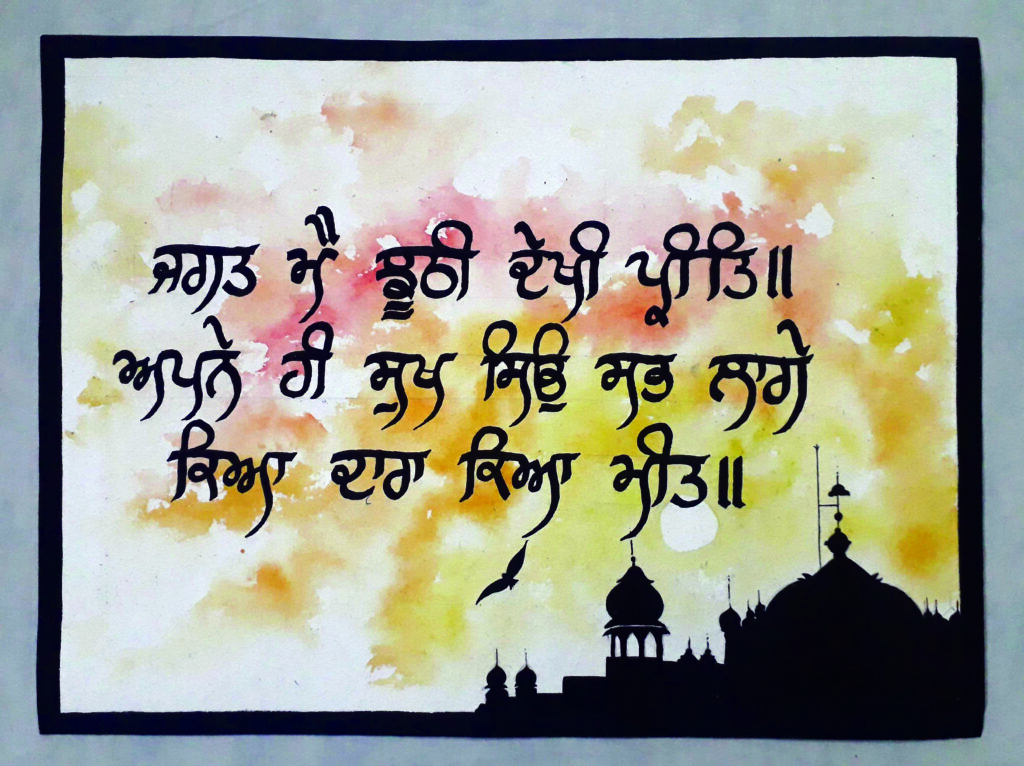 ਜਗਤ ਮੈ ਝੂਠੀ ਦੇਖੀ ਪ੍ਰੀਤਿ॥
ਅਪਨੇ ਹੀ ਸੁਖ ਸਿਉ ਸਭ ਲਾਗੇ
ਕਿਆ ਦਾਰਾ ਕਿਆ ਮੀਤ॥